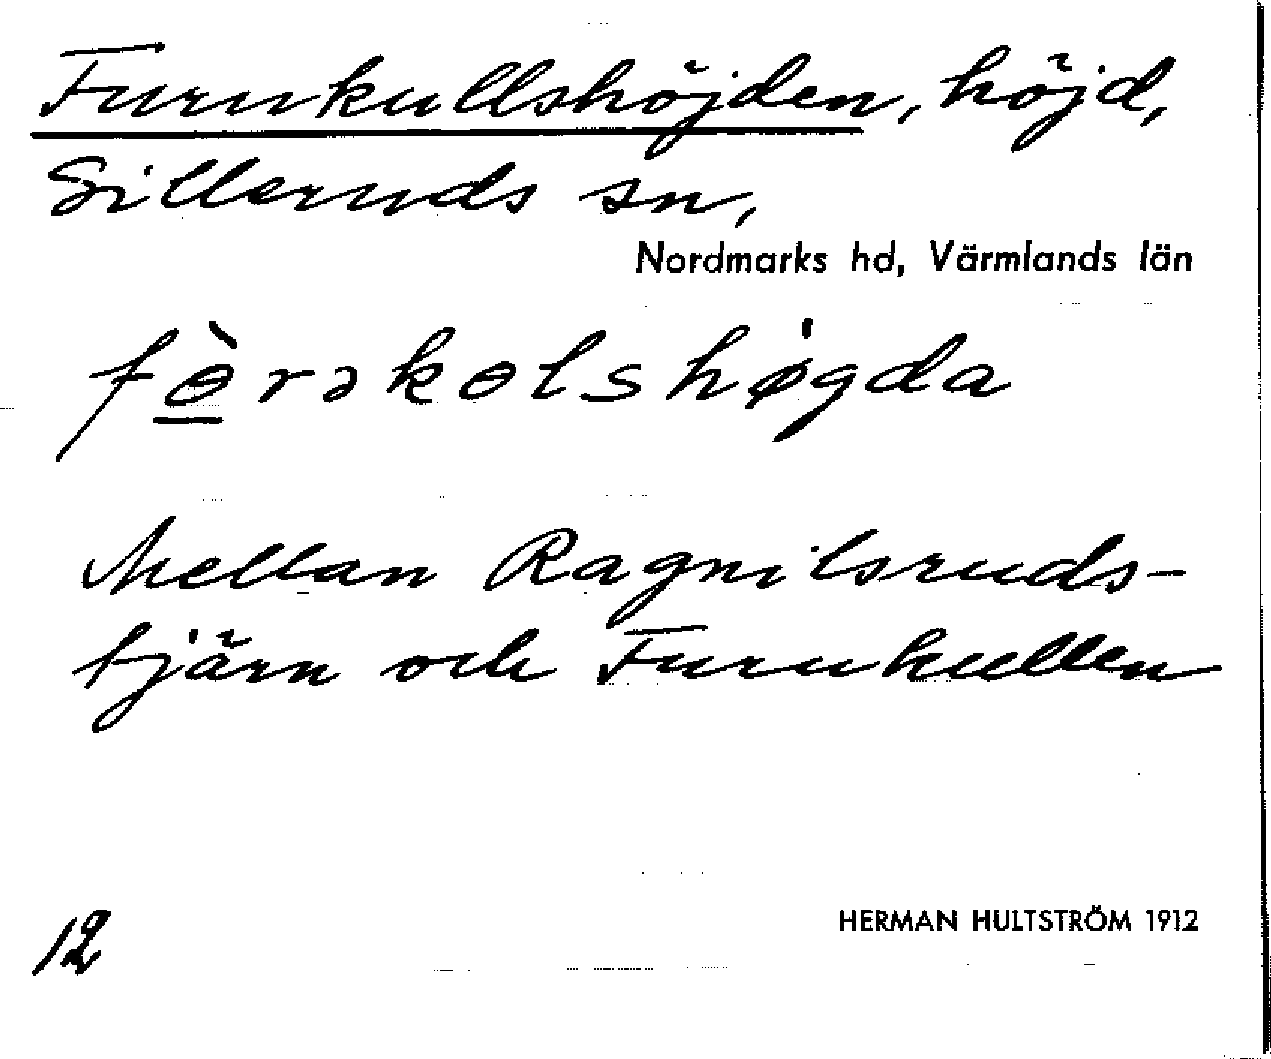 Furukullshöjden, höjd,
Silleruds sn,
Nordmarks hd, Värmlands län
fɵ̱̀rəkɵlshø̍gda
Mellan Ragnilsruds-
tjärn och Furukullen
12
HERMAN HULTSTRÖM 1912